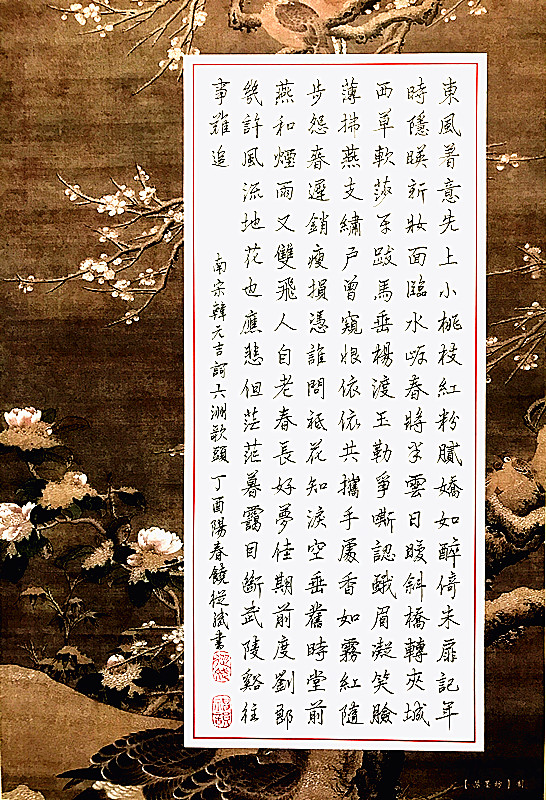 東風着意先上小桃枝紅粉膩嬌如醉倚朱扉記年
時隱暎新妝面臨水岸春將半雲日暖斜橋轉夾城
西草軟莎平跋馬垂楊渡玉勒爭嘶認蛾眉凝笑臉
薄拂燕支繡戶曾窺恨依依共攜手處香如霧紅隨
步怨春遲銷瘦損憑誰問祗花知淚空垂舊時堂前
燕和煙雨又雙飛人自老春長好夢佳期前度劉郎
幾許風流地花也應悲但茫茫暮靄目斷武陵谿往
事難追
南宋韓元吉詞六洲歌頭 丁酉陽春鏡從斌書